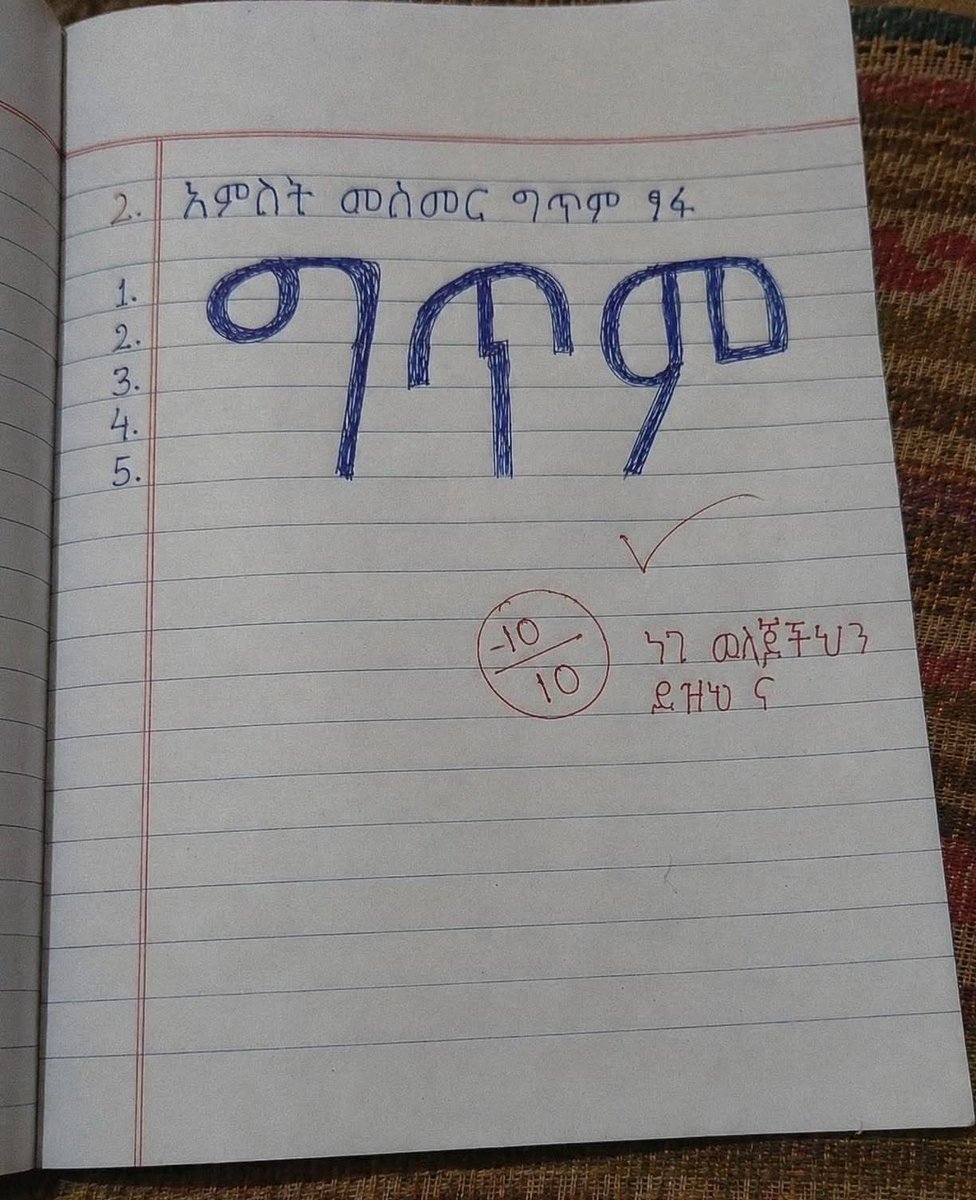 2. አምስት መስመር ግጥም ፃፋ
1.
2.
3.
4.
5.
ግጥም
-10
10
ነገ ወላጆችህን
ይዝህ ና